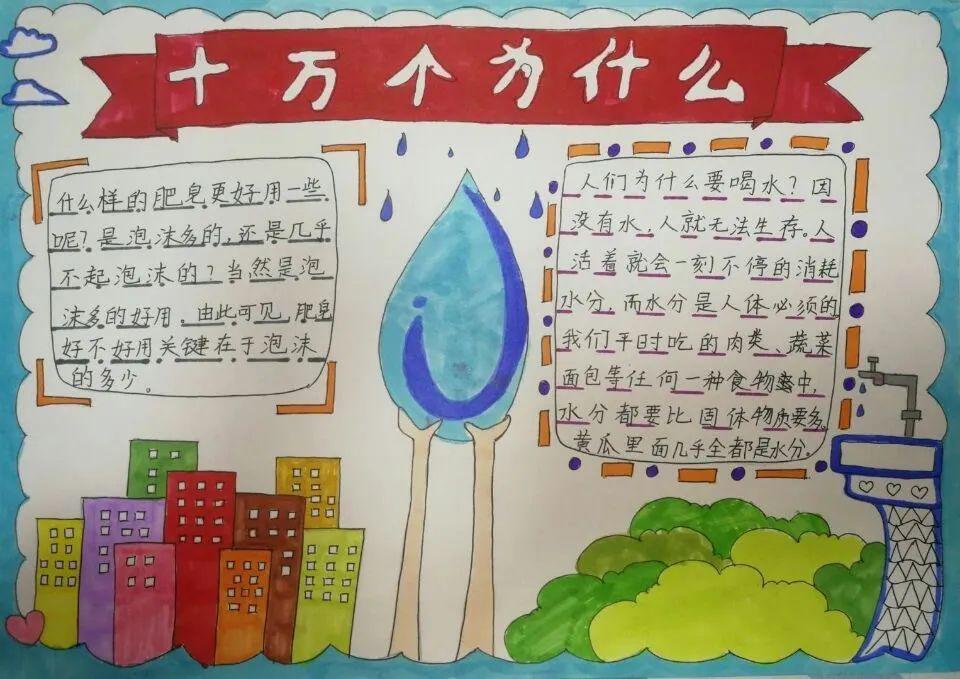 十万个为什么
什么样的肥皂更好用一些
呢？是泡沫多的，还是几乎
不起泡沫的？当然是泡
沫多的好用，由此可见，肥皂
好不好用关键在于泡沫
的多少。
人们为什么要喝水？因
没有水，人就无法生存。人
活着就会一刻不停的消耗
水分，而水分是人体必须的
我们平时吃的肉类、蔬菜
面包等任何一种食物中，
水分都要比固体物质要多。
黄瓜里面几乎全都是水分。